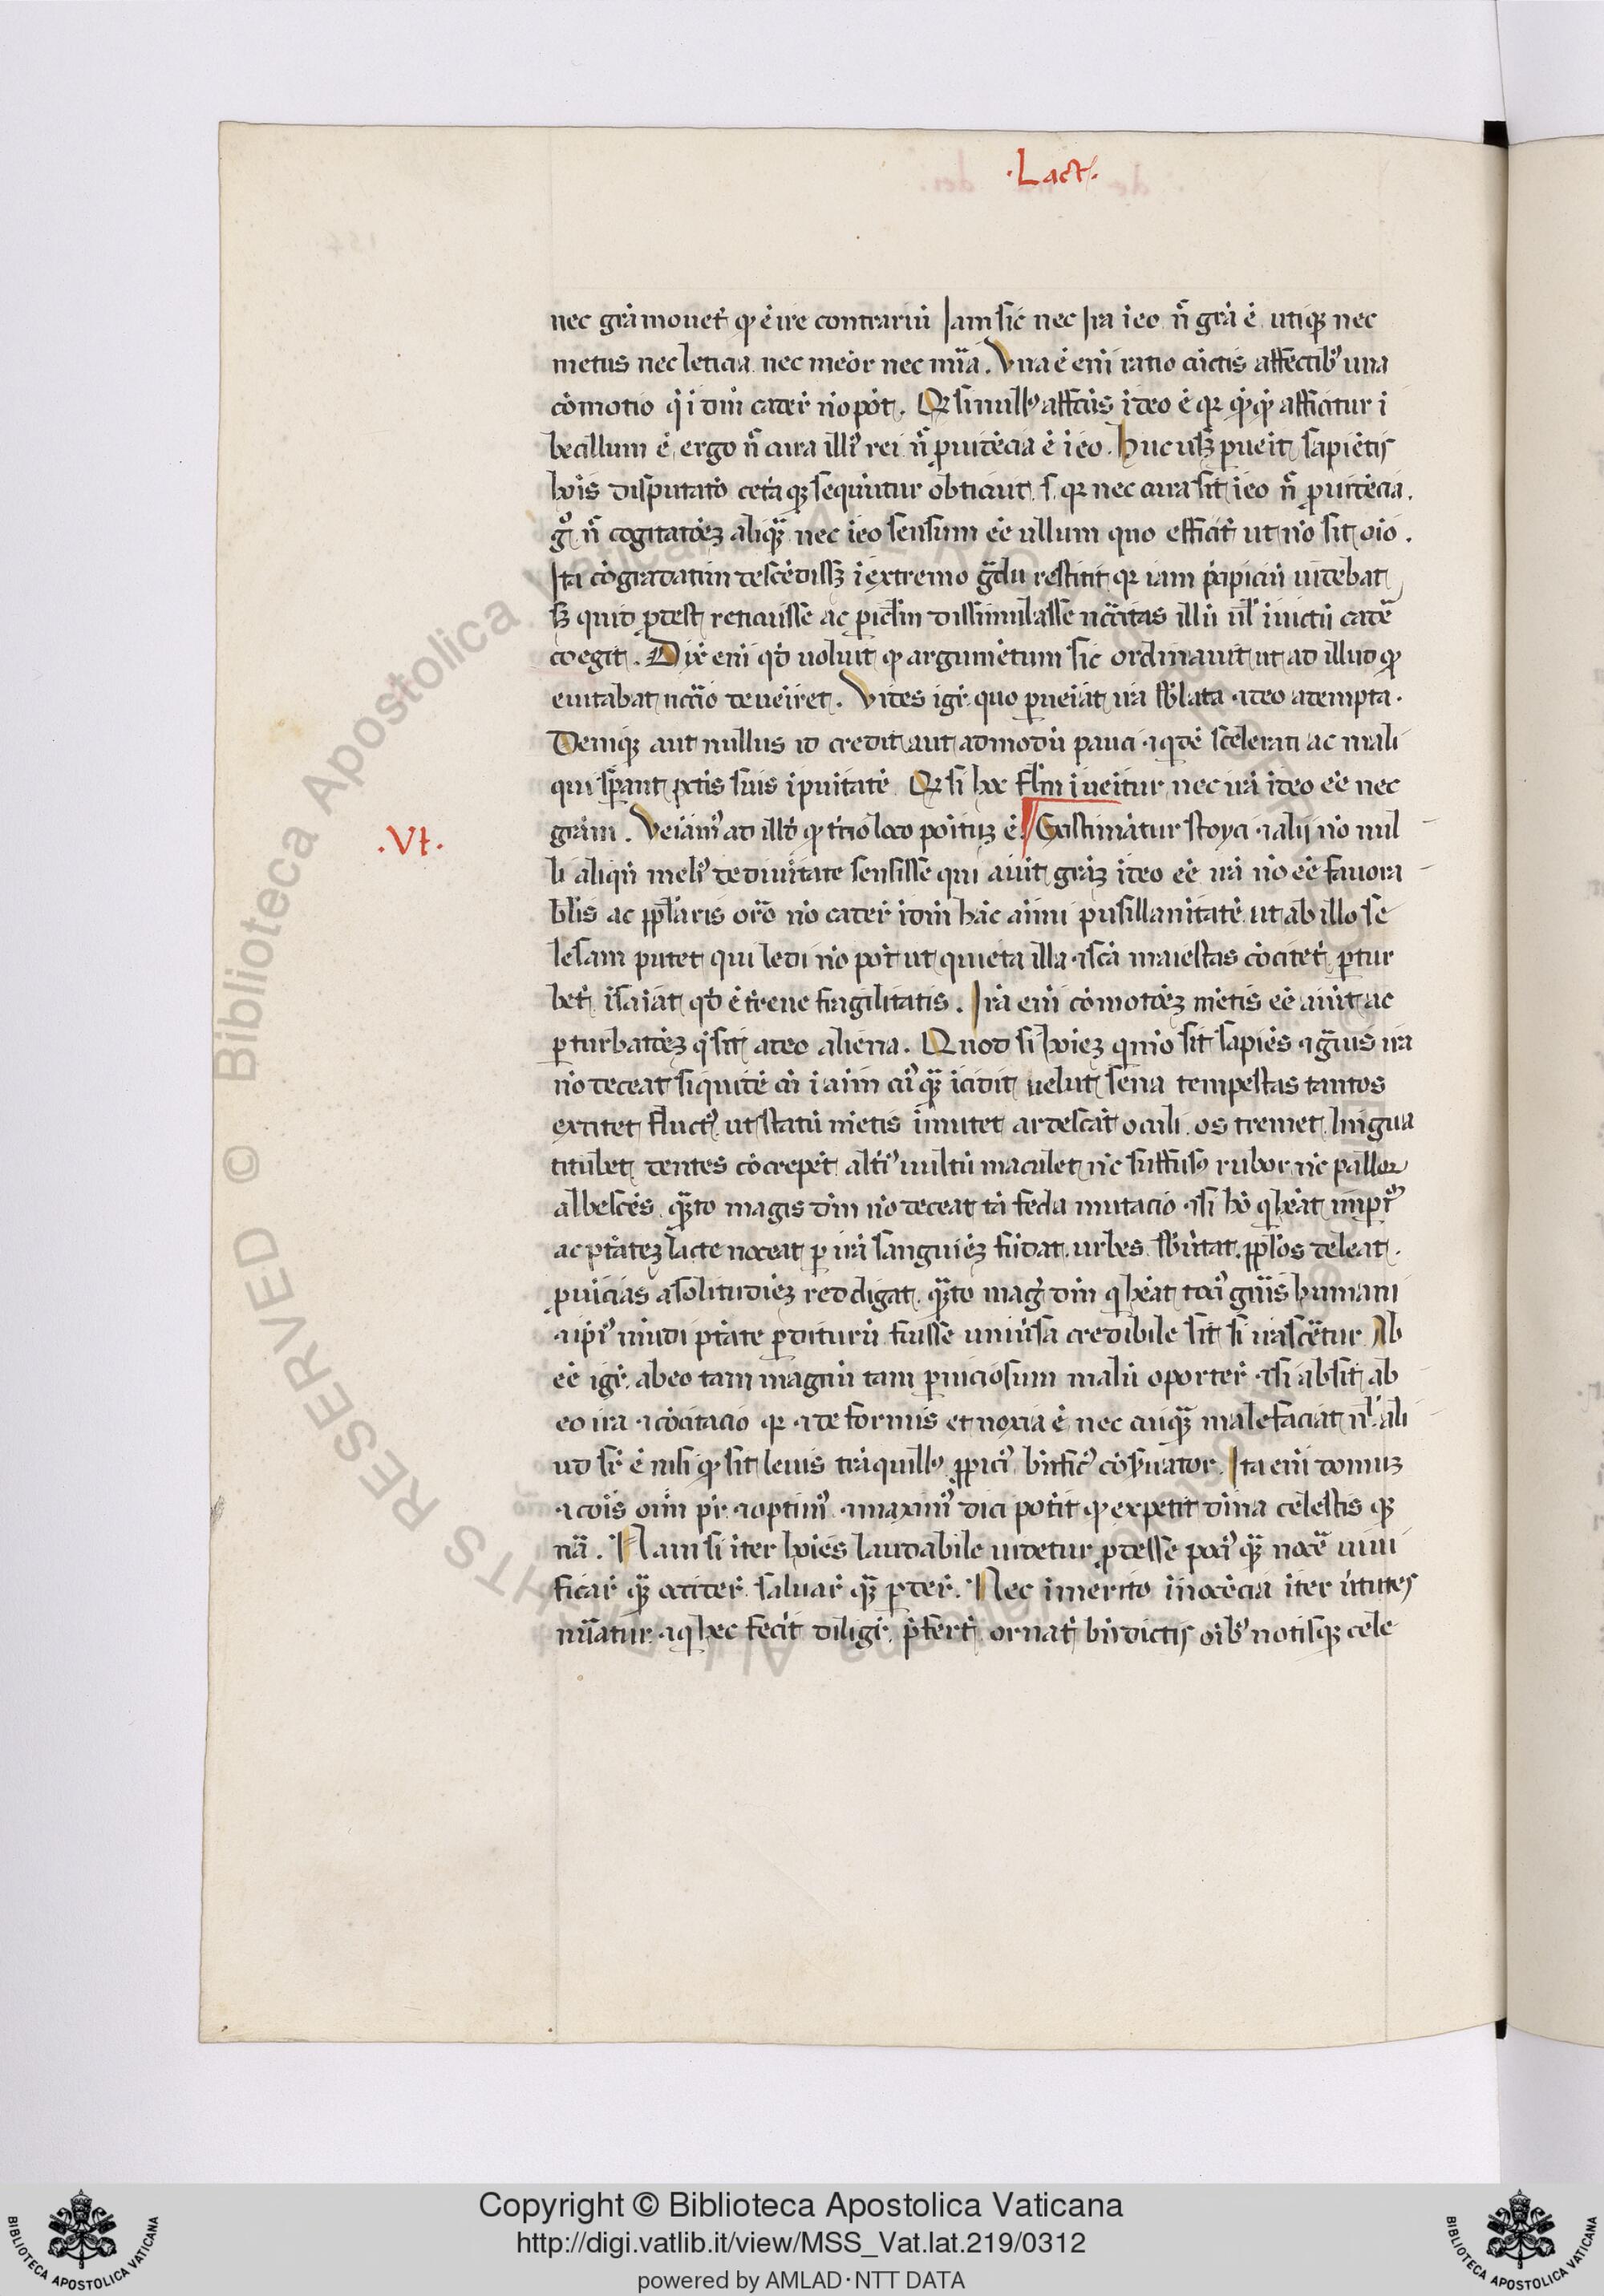 ·Lact·
nec grā mouet̄ qđ ē ire contrariū Jam sic nec Jra ī eo nͦ grā ē utiqȝ nec
metus nec leticia nec meōr nec mīa. Vna ē enī ratio cūctis affectibȝ una
cōmotio q̄ ī dm̄ cader̄ nō pōt. Qꝛ si nullꝰ affctūs ī deo ē qꝛ qͥcqͥd afficitur ī
becillum ē ergo nͦ cura illiꝰ rei nͦ ꝓuidēcia ē ī eo. Huc usqȝ ꝑueīt sapiētis
hoīs disputatō cetā que sequūtur obticuit s. qꝛ nec cura sit ī eo nͦ ꝓuidēcia.
gͦ nͦ cogitatōeȝ aliquā nec ī eo sensum ēe ullum quo efficit̄ ut nō sit oīo.
Ita cōgradatim descēdissȝ ī extremo gͣdu restitit qꝛ iam p̄cipiciū uidebat
sȝ quid ꝓdest reticuisse ac ꝑiclm̄ dissimulasse ncc̄itas illū ul̄ īuictū cadē
coegit. Dix̄ enī qd̄ uoluit qđ argumētum sic ordinauit ut ad illud qđ
euitabat ncc̄io deueīret. Vides igr̄ quo ꝑueīat ira sb̄lata a deo adempta.
Deniqȝ aut nullus id credit aut admodū pauci ⁊ qͥdē scelerati ac mali
qui sꝑant pctīs suis īpuitatē. Qꝛ si hoc flm̄ īueitur nec irā ī deo ēe nec
grām. Veiām̄ ad illd̄ qđ tͥcio loco poituȝ ē. Exstimātur stoyci ⁊ alij nō nul
·VI·
li aliqͥn̄ meliꝰ de diuītate sensisse qui aiūt grāȝ ī deo ēe irā nō ēe fauora
bl̄is ac ppl̄aris orō nō cader̄ ī dm̄ hāc aīmi pusillanītatē ut ab illo se
lesam putet qui ledi nō pōt ut quieta illa ⁊ scā maiestas cōcitet̄ ꝑtur
bet̄ īsaīat qd̄ ē tr̄ene fragilitatis. Irā enī cōmotōeȝ mētis ēe aiūt ac
ꝑturbatōeȝ q̄ sit a deo aliena. Quod si hoīeȝ qͥ mō sit sapiēs ⁊ gͣuis ira
nō deceat siquidē cū ī aīm cuiꝰquā īcidit uelut seua tempestas tantos
excitet fluctꝰ ut statū mētis īmutet ardescāt oculi os tremet lingua
titubet dentes cōcrepēt altīꝰ uultū maculet nc̄ suffusꝰ rubor nc̄ pallor
albescēs qͣto magis dm̄ nō deceat tā feda mutacio ⁊ si hō qͥ heāt imꝑiū
ac ptātez lacte noceat ꝑ irā sanguieȝ fūdat urbes sb̄uertat ppl̄os deleat.
ꝓuīcias a solitudīeȝ reddigat qͣto magꝭ dm̄ qͥ heāt totiꝰ gn̄is humani
⁊ ip̄iꝰ mūdi ptāte ꝑditurū fuisse uniūsa credibile sit si irascētur Ab
ēe igr̄ ab eo tam magnū tam ꝑniciosum malū oporter̄ ⁊ si absit ab
eo ira ⁊ cōcitacio qꝛ ⁊ deformis et noxia ē nec cuiquā male faciat nl̄ ali
ud sr̄ ē nisi qđ sit leuis trāquillꝰ ꝓpiciꝰ bn̄ficꝰ cōseruator. Ita enī domuȝ
⁊ coīs oīm pr̄ ⁊ optimꝰ ⁊ maximꝰ dici potit qđ expetit dīna celestis qȝ
nā. Nam si īter hoīes laudabile uidetur ꝓdesse pociꝰ qͣ nocē uiui
ficar̄ qͣ occider̄ saluar̄ qͣ ꝑder̄. Nec īmerito īnocēcia īter ūtutes
nūatur. ⁊ qͥ hec fecit diligr̄ p̄fert̄ ornat̄ bn̄dictis oībȝ uotisqȝ cele
Copyright © Biblioteca Apostolica Vaticana
http://digi.vatlib.it/view/MSS_Vat.lat.219/0312
powered by AMLAD·NTT DATA
BIBLIOTECA APOSTOLICA VATICANA
BIBLIOTECA APOSTOLICA VATICANA